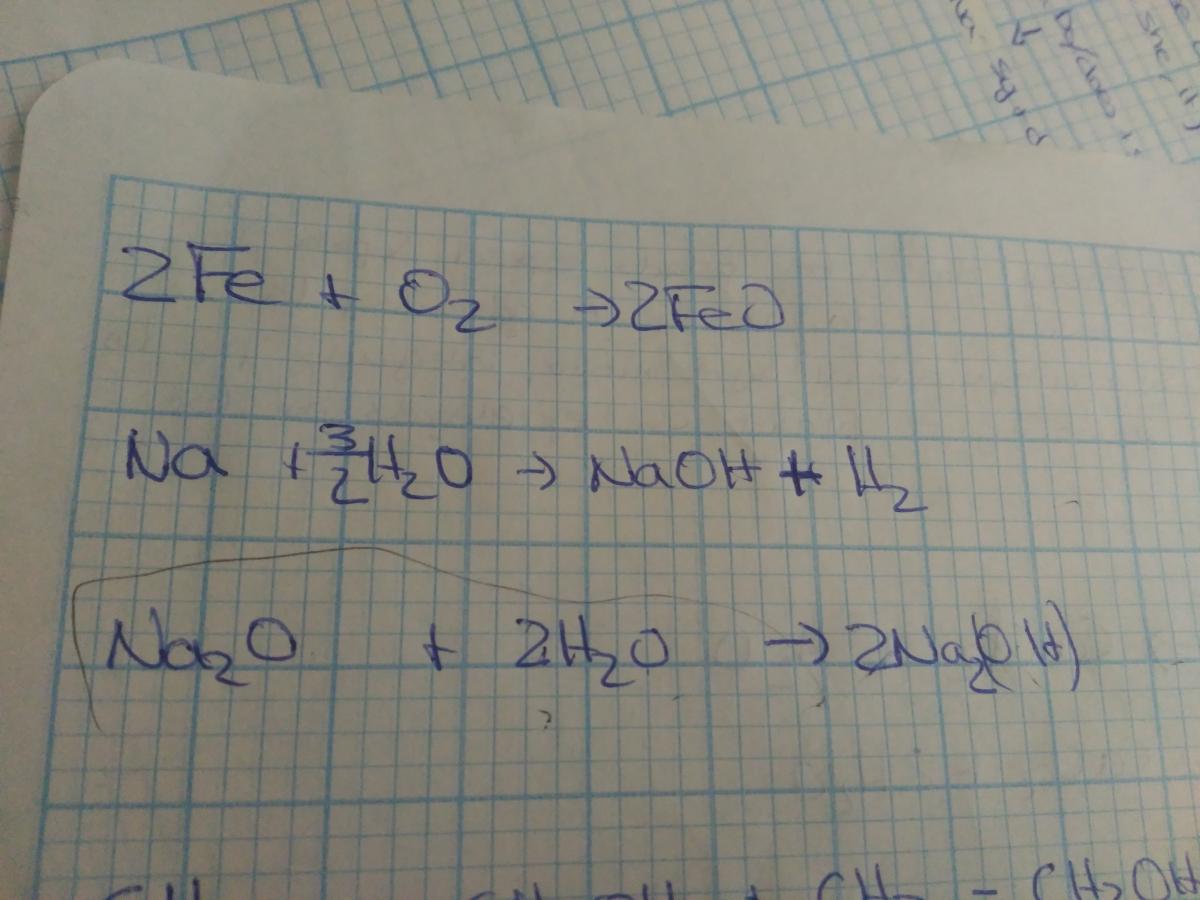 2Fe + O₂ → 2FeO
Na + 3/2 H₂O → NaOH + H₂
Na₂O + 2H₂O → 2Na₂(OH)
+ CH₂ - CH₂OH